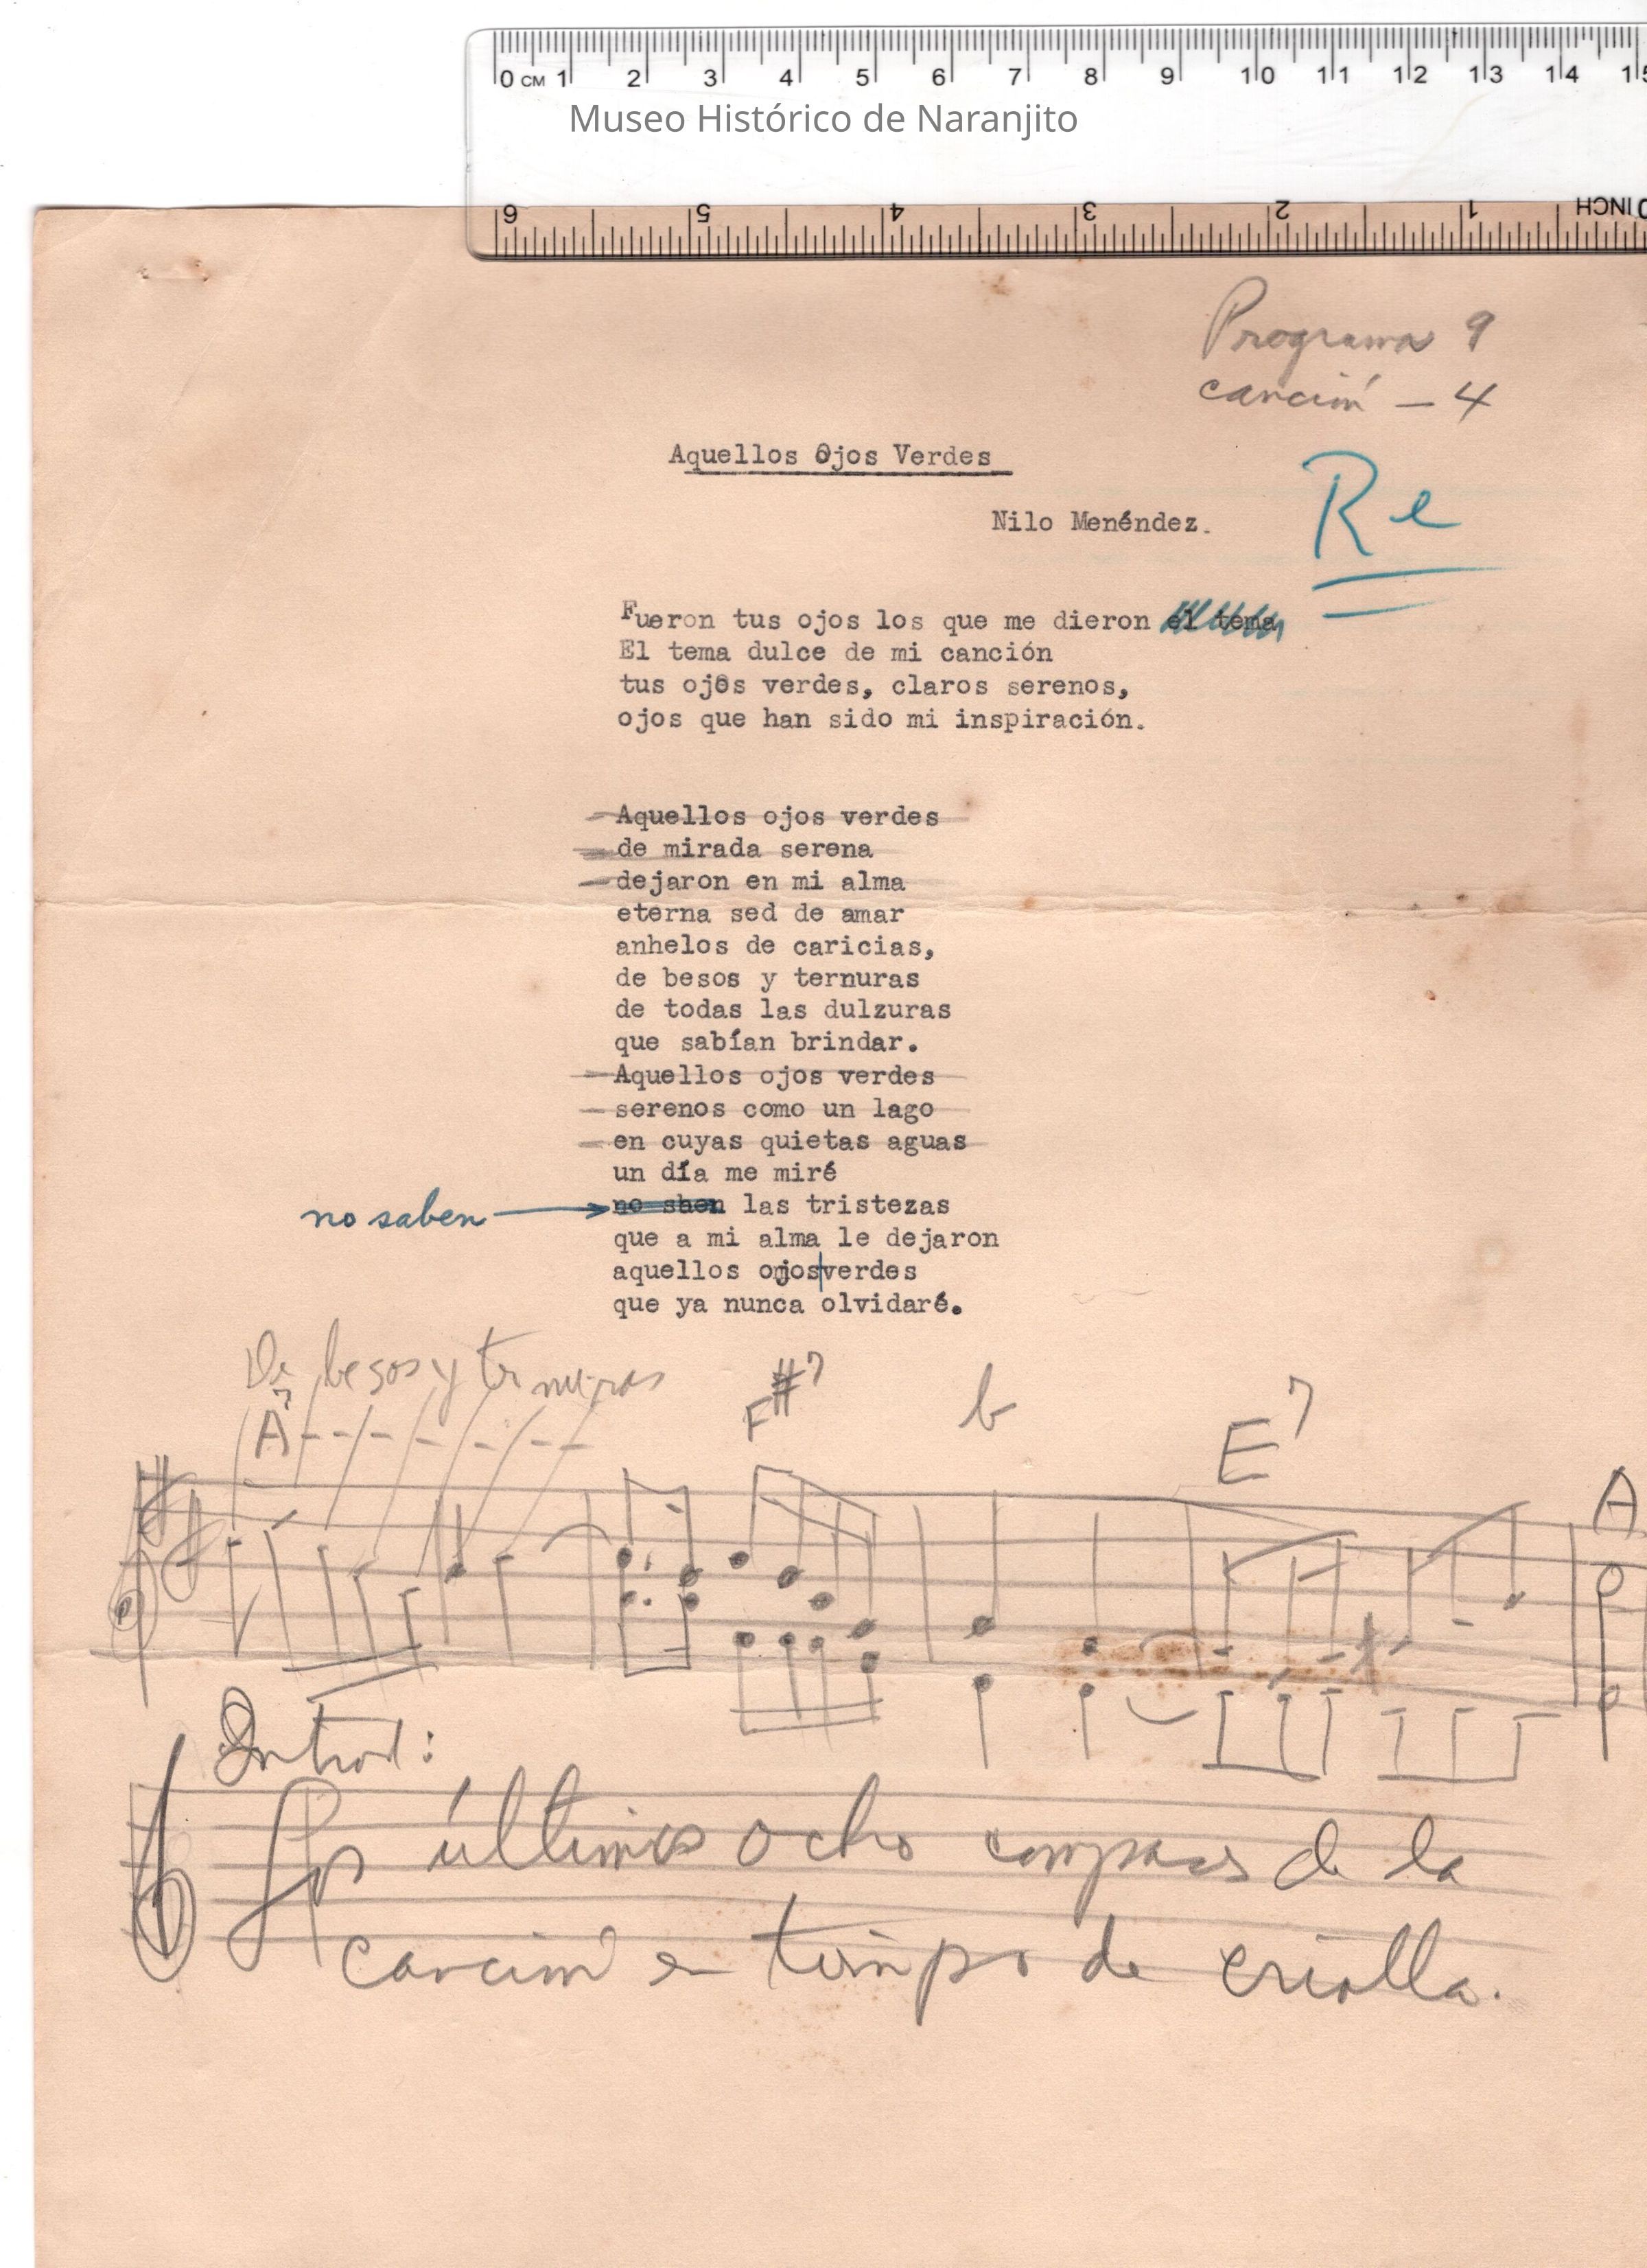 0 CM 1 2 3 4 5 6 7 8 9 10 11 12 13 14 15
Museo Histórico de Naranjito
6 5 4 3 2 1 INCH 0
Programa 9
canción - 4
Aquellos Ojos Verdes
Re
Nilo Menéndez.
Fueron tus ojos los que me dieron el tema
El tema dulce de mi canción
tus ojos verdes, claros serenos,
ojos que han sido mi inspiración.
Aquellos ojos verdes
de mirada serena
dejaron en mi alma
eterna sed de amar
anhelos de caricias,
de besos y ternuras
de todas las dulzuras
que sabían brindar.
Aquellos ojos verdes
serenos como un lago
en cuyas quietas aguas
un día me miré
no saben no sben las tristezas
que a mi alma le dejaron
aquellos ojosverdes
que ya nunca olvidaré.
De besos y ternuras
A7 F#7 b E7 A
Introd:
Los últimos ocho compases de la
canción en tiempo de criolla.